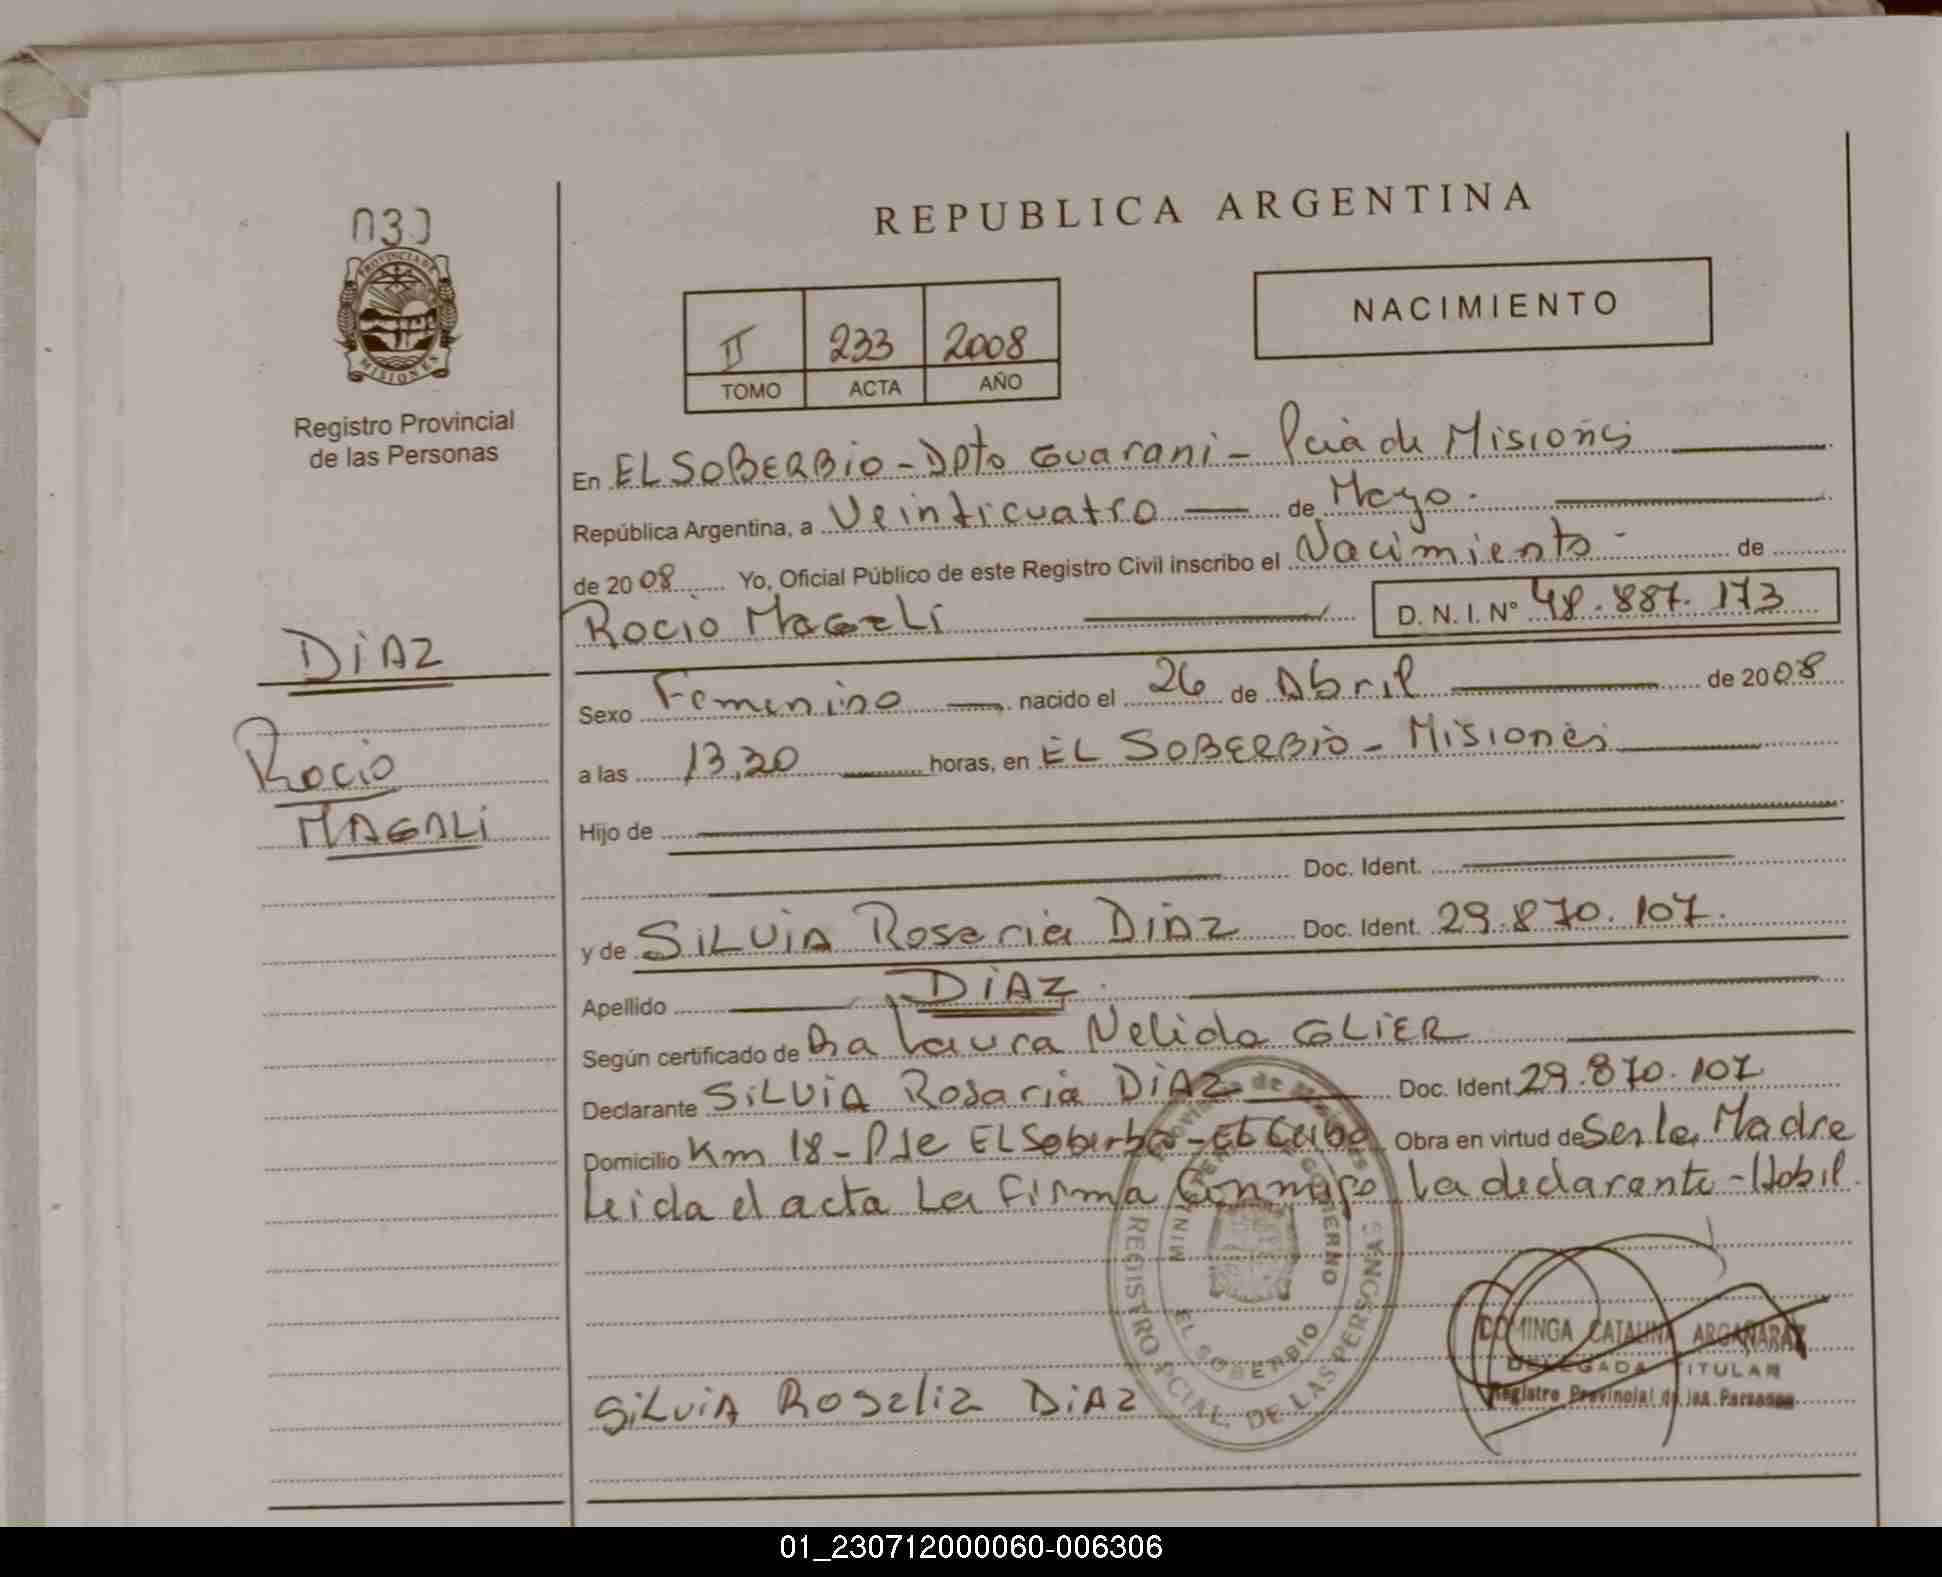 030
PROVINCIA DE
MISIONES
Registro Provincial
de las Personas
DiAZ
Rocio
MAGALi
REPUBLICA ARGENTINA
II 233 2008
TOMO ACTA AÑO
NACIMIENTO
En EL SOBERBio - Dpto Guarani - Pcia de Misiones
República Argentina, a Veinticuatro — de Mayo.
de 2008 Yo, Oficial Público de este Registro Civil inscribo el Nacimiento - de
Rocio Magali D. N. I. N° 48.887.173
Sexo Femenino — nacido el 26 de Abril de 2008
a las 13,20 horas, en EL SOBERBio - Misiones
Hijo de
Doc. Ident.
y de SiLViA Rosaria DiAZ Doc. Ident. 29.870.107.
Apellido DiAZ
Según certificado de Laura Nelida GLiER
Declarante SiLViA Rosaria DiAZ Doc. Ident. 29.870.107
Domicilio Km 18 - Pje EL Soberbio - Obra en virtud de Ser la Madre
Leida el acta La firma Conmigo la declarante - Habil.
Provincia de Misiones
MINISTERIO GOBIERNO
EL SOBERBIO
REGISTRO PCIAL. DE LAS PERSONAS
SiLViA Rosalia DiAZ
DOMINGA CATALINA ARGAÑARAZ
DELEGADA TITULAR
Registro Provincial de las Personas
01_230712000060-006306